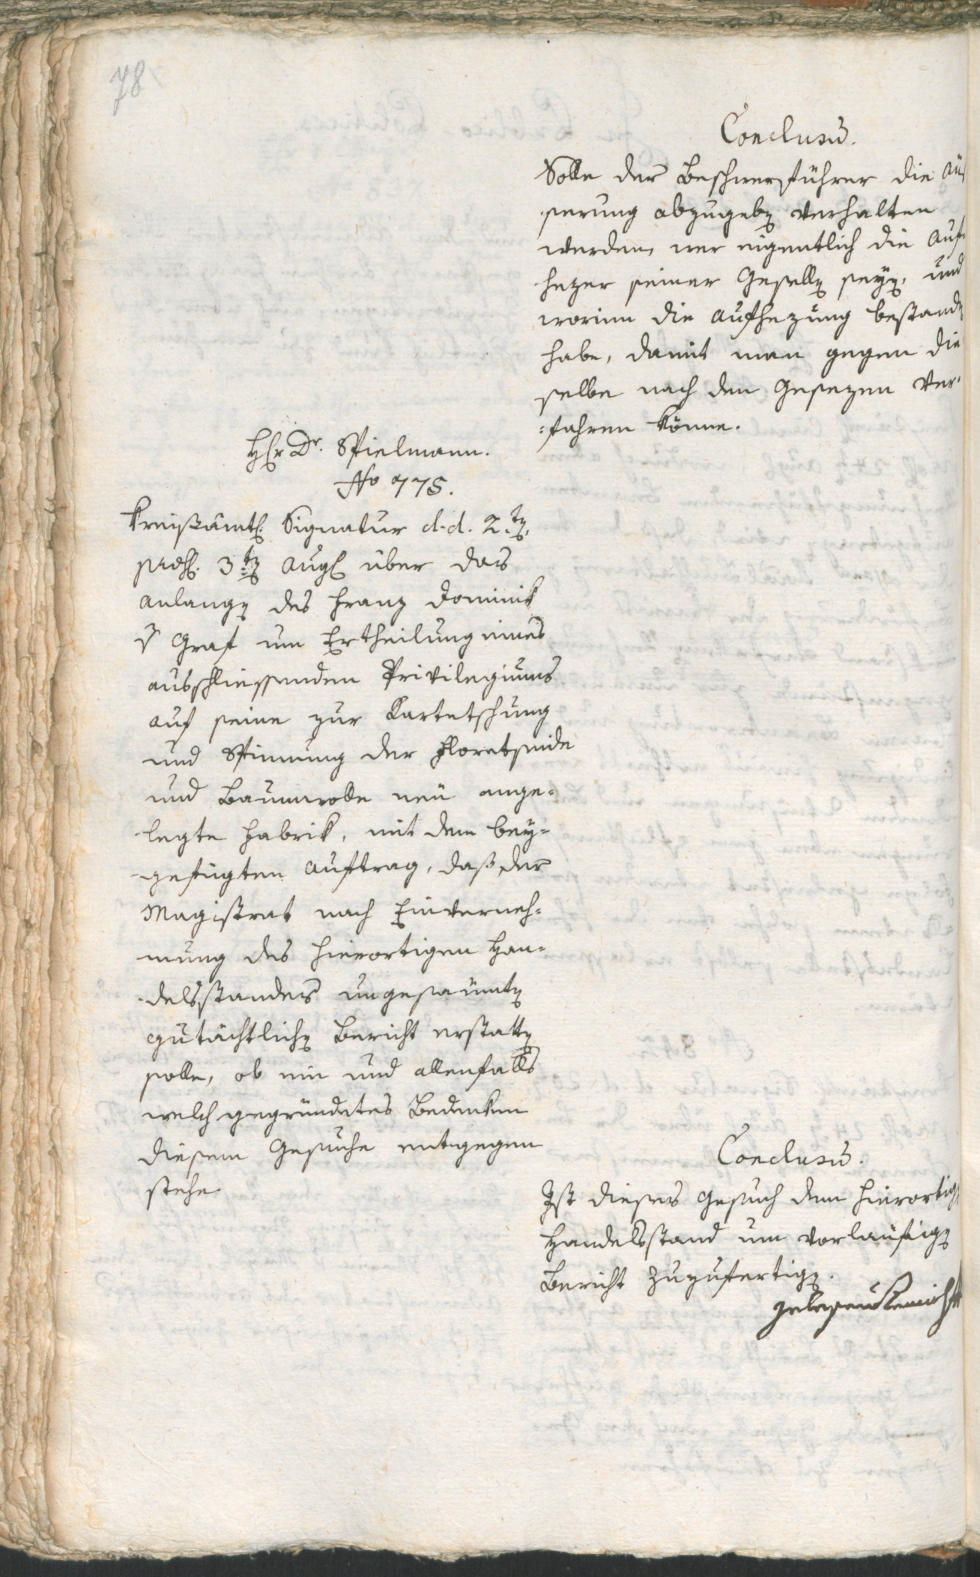 78
Conclusũ.
Solle der Beschwerführer die Aüs
serung abzugeben verhalten
werden, wer eigentlich die Auf-
hezer seiner Gesellen seyen, und
worinn die Aufhezung bestanden
habe, damit man gegen die
selbe nach den Gesezen ver-
=fahren könne.
Hr Dr. Spielmann.
No 775.
Kreißämtl. Signatur d. d. 2.ten
3ten Augl über das
Anlangen des Franz Dominik
Graf um Ertheilung eines
ausschliessenden Privilegiums
auf seine zur Kartetschung
und Spinnung der Floretseide
und Baumwolle neü ange=
legte Fabrik, mit dem bey=
gefügten Auftrag, daß der
Magistrat nach Einverneh=
mung des hierortigen Han=
delsstandes ungesaümten
gutächtlichen Bericht erstatten
solle, ob ein und allenfalls
welch gegründetes Bedenken
diesem Gesuche entgegen
stehe.
Conclusũ.
Ist dieses Gesuch dem hierortigen
Handelsstand um vorlaüfigen
Bericht zuzufertigen.
gelesen